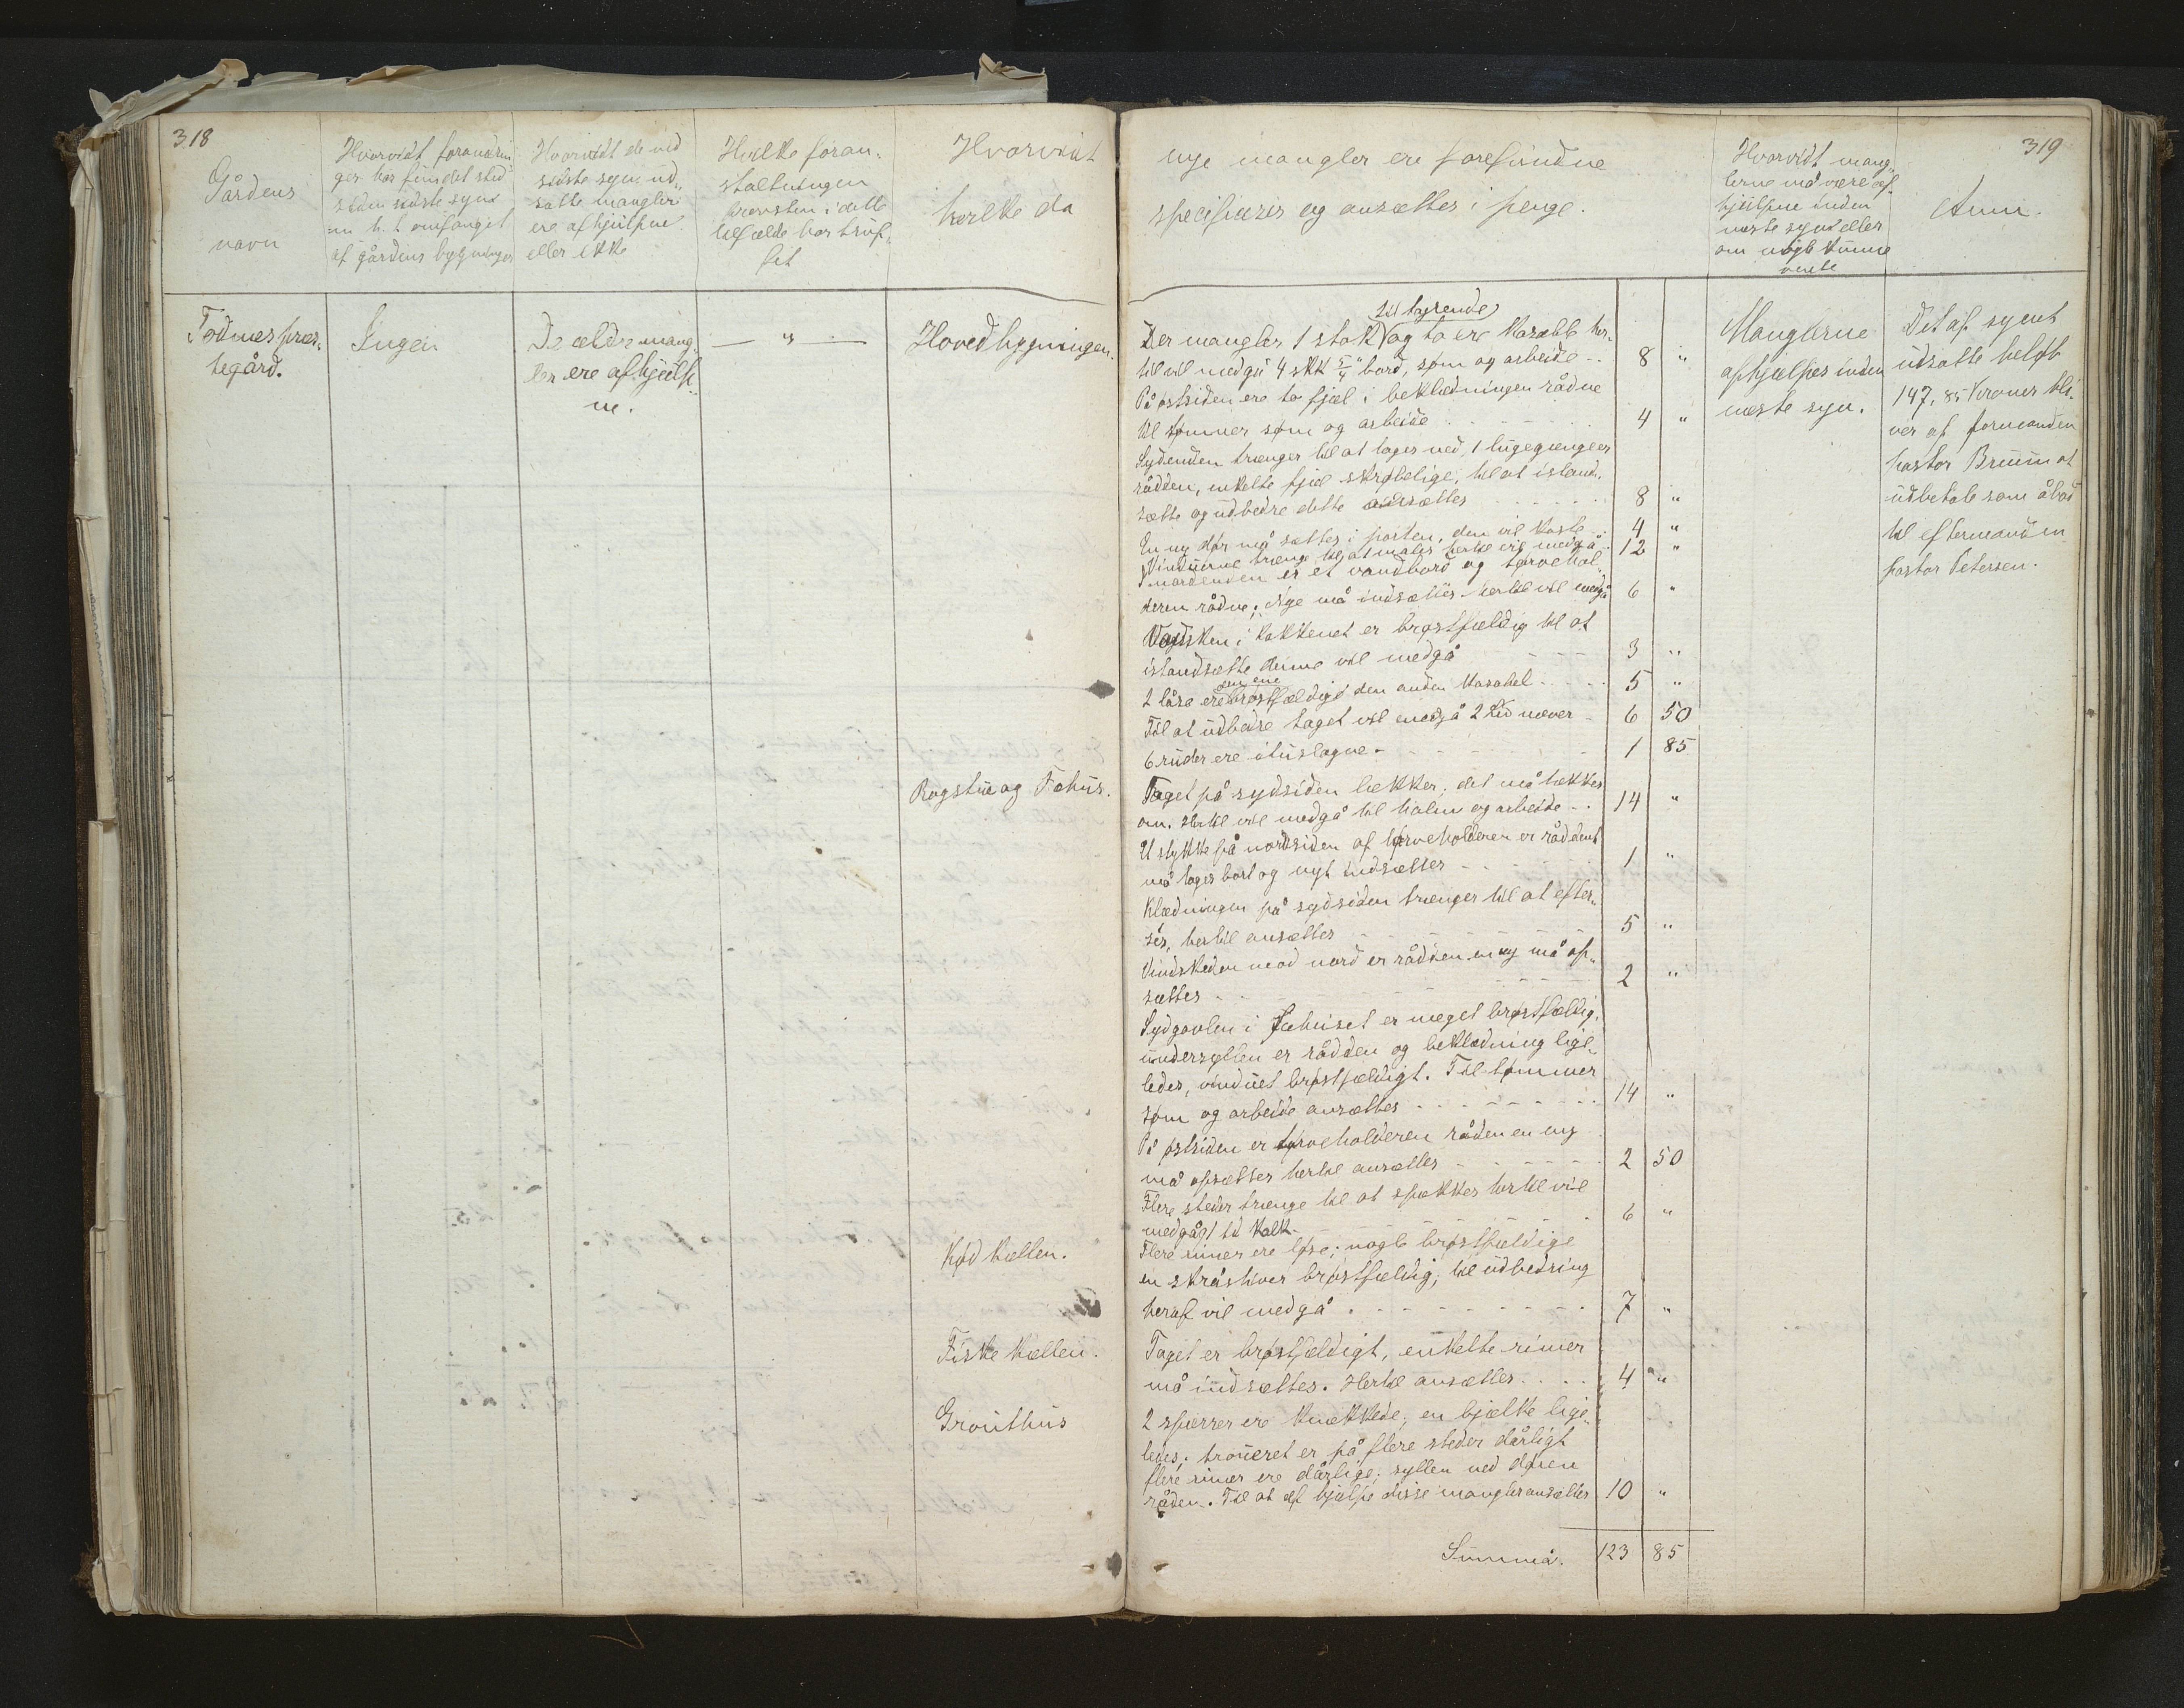 318
Gårdens
navn
Hvorvidt forandrin
ger har fundet sted
siden sidste syn
m. h. t. omfanget
af gårdens bygninger
Hvorvidt de ved
sidste syn ud„
satte mangler
ere afhjulpne
eller ikke
Hvilke foran„
staltninger
provsten i dette
tilfælde har truf„
fet
Hvorvidt
hvilke da
Tødnes præs„
tegård.
Ingen
De ældre mang„
ler ere afhjulp„
ne.
— „ —
Hovedbygningen.
Rogstue og Fæhus.
Kød kælleren.
Fiske kælleren.
Grouthus
319
nye mangler ere forefundne
specificeres og ansættes i penge.
Hvorvidt mang„
lerne må være af„
hjulpne inden
næste syn eller
om nogle kunne
vente
Anm.
til tagrende
Der mangler 1 stok og to ere kasable her„
til vil medgå 4 stk 5/4" bord, søm og arbeide - - 8 "
På østsiden ere to fjæl i beklædningen rådne
til tømmer søm og arbeide - - - 4 "
Sydenden trænger til at tages ned, 1
rådden, enkelte fjæl skrøbelige, til at istand„
sætte og udbedre dette ansættes - - - 8 "
En ny dør må sættes i porten, den vil koste - 4 "
Vinduerne trænge til at males hertil vil medgå - 12 "
I nordenden er et vandbord og tørvehol„
deren rådne; nye må indsættes hertil vil medgå 6 "
Vasken i køkkenet er brøstfældig til at
istandsætte denne vil medgå - - - 3 "
den ene
2 låse ere brøstfældige den anden kasabel - - - 5 "
Til at udbedre taget vil medgå 2 Lid næver - 6 50
6 ruder ere ituslagne - - - 1 85
Taget på sydsiden lækker; det må tækkes
om. Hertil vil medgå til halm og arbeide - - 14 "
Et stykke på nordsiden af tørveholderen er råddent
må tages bort og nyt indsættes - - - 1 "
Klædningen på sydsiden trænger til at efter„
sés, hertil ansættes - - - 5 "
Vindskeden mod nord er rådden en ny må op„
sættes - - - 2 "
Sydgavlen i Fæhuset er meget brøstfældig,
undersyllen er rådden og beklædning lige„
ledes, vinduet brøstfældigt. Til tømmer
søm og arbeide ansættes - - - 14 "
På østsiden er tørveholderen råden en ny
må opsættes hertil ansættes - - - 2 50
Flere steder trænge til at spækkes hertil vil
medgå 1 td kalk - - - 6 "
Flere rimer ere løse; nogle brøstfældige
en skråstiver brøstfældig; til udbedring
heraf vil medgå - - - 7 "
Taget er brøstfældigt, enkelte rimer
må indsættes. Hertil ansættes - - - 4 "
2 sparrer ere knækkede, en bjælke lige„
ledes; troueret er på flere steder dårligt
flere rimer ere dårlige; syllen ved døren
råden. Til at afhjælpe disse mangler ansættes 10 "
Summa. 123 85
Manglerne
afhjælpes inden
næste syn.
Det af synet
udsatte beløb
147,85 Kroner bli„
ver af formanden
pastor Bruun at
udbetale som åbod
til eftermanden
pastor Petersen.